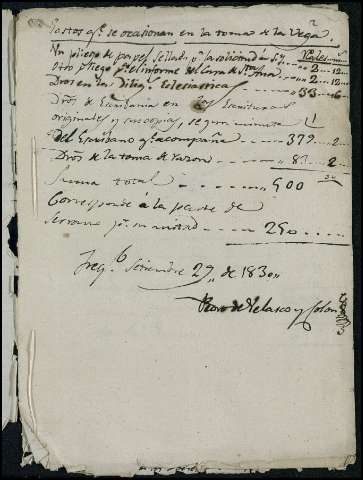 Gastos q.e se ocasionan en la toma de la Vega
Un pliego de papel sellado p.a la solicitud 2 .. 12
Otro pliego p.a el informe del Cura de S.ta Ana 2 .. 12
Dros en las Dilig.s Eclesiasticas 33 .. 6
Dros de Escribania en los Escrituras
originales y sus copias, segun minuta
del Escribano q.e acompaña 379 .. 2
Dros de la toma de razon 83 .. 2
Suma total 500
Corresponde á la parte de
p.r su mitad 250
Freg.l Setiembre 27 de 1830
Pedro de Velasco y Colon